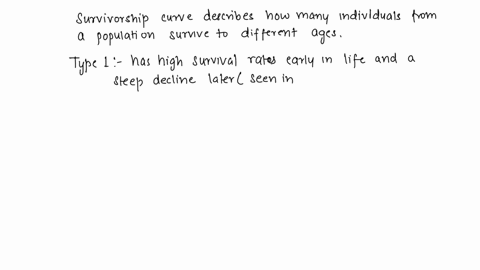 Survivorship curve describes how many individuals from
a population survive to different ages.
Type 1:- has high survival rates early in life and a
steep decline later( seen in